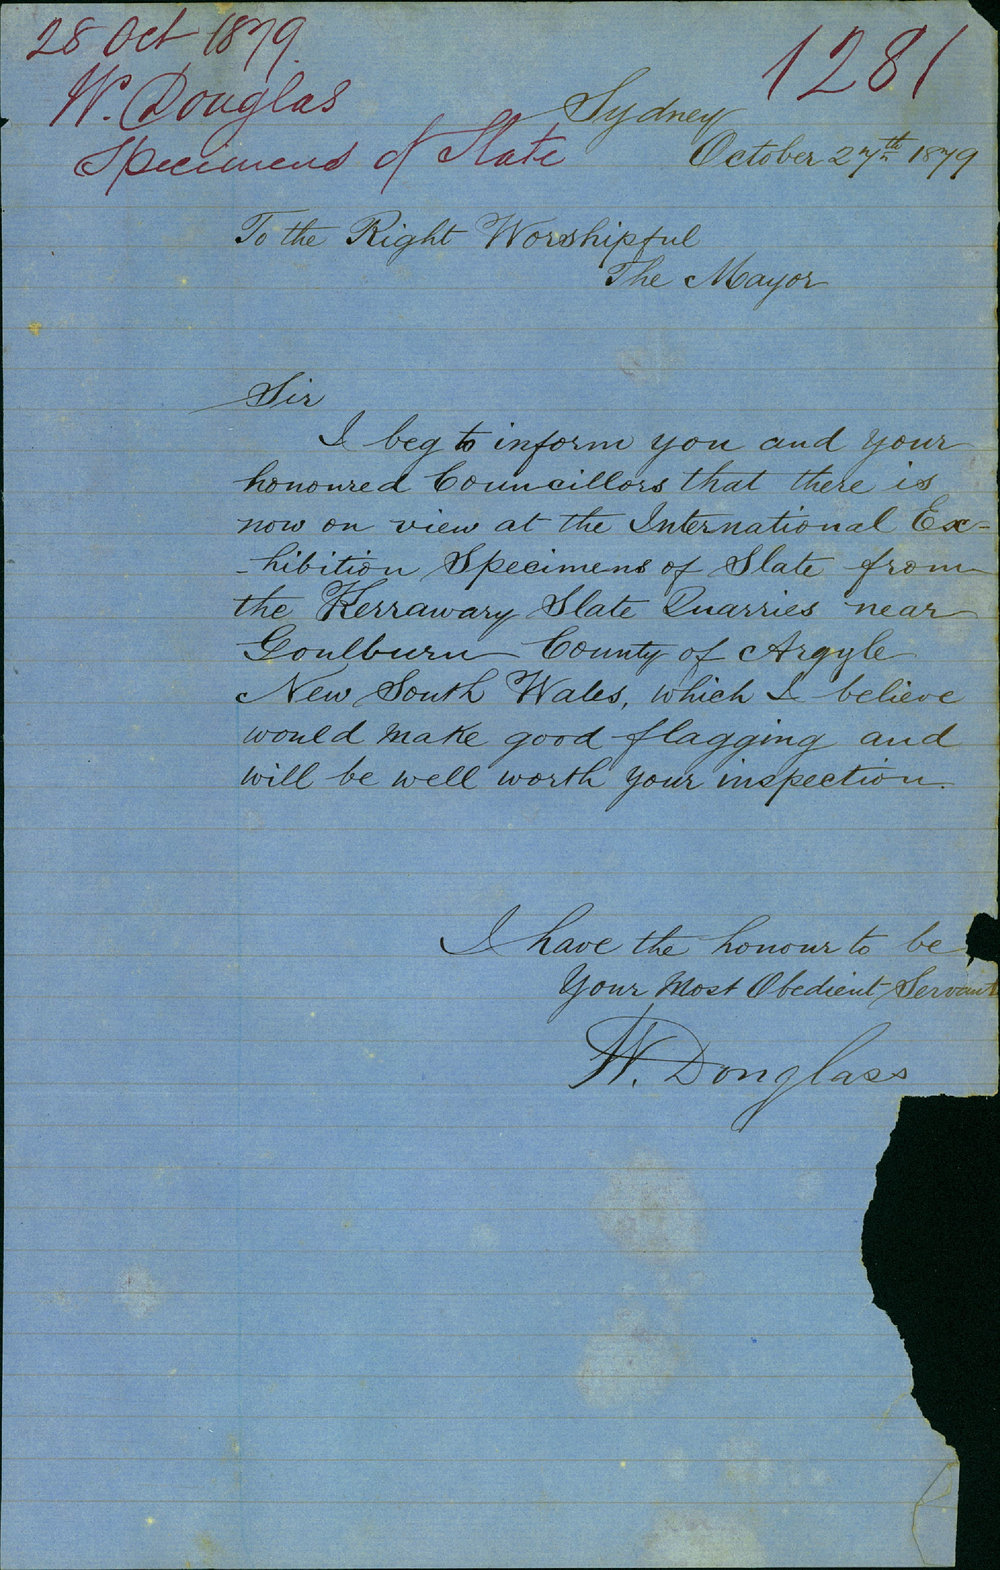 28 Oct 1879
1281
W. Douglas
Specimens of Slate
Sydney
October 27th 1879
To the Right Worshipful
The Mayor
Sir
I beg to inform you and your
honoured Councillors that there is
now on view at the International Ex-
-hibition Specimens of Slate from
the Kerrawary Slate Quarries near
Goulburn County of Argyle
New South Wales, which I believe
would make good flagging and
will be well worth your inspection.
I have the honour to be
Your Most Obedient Servant
W. Douglass